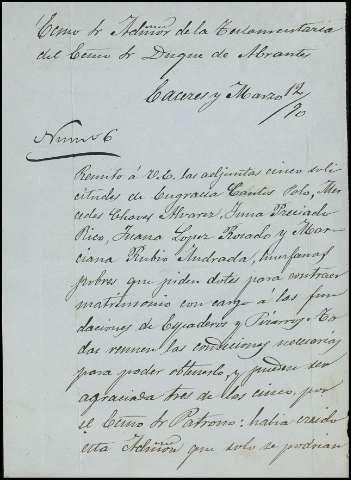 Ecmo Sr Admor de la Testamentaria
del Ecmo Sr Duque de Abrantes
Caceres y Marzo 12/90
Num 6
Remito á V.E. las adjuntas cinco soli
citudes de Engracia Cantos Polo, Mer
cedes Chaves Alvarez, Juna Preciado
Rico, Juana Lopez Rosado y Mar
ciana Rubio Andrada, huerfanas
pobres que piden dotes para contraer
matrimonio con cargo á las fun
daciones de Escaderos y Pizarro. To
das reunen las condiciones necesarias
para poder obtenerlo, y pueden ser
agraciada tres de las cinco, por
el Ecmo Sr Patrono: habia creido
esta Admon que solo se podrian